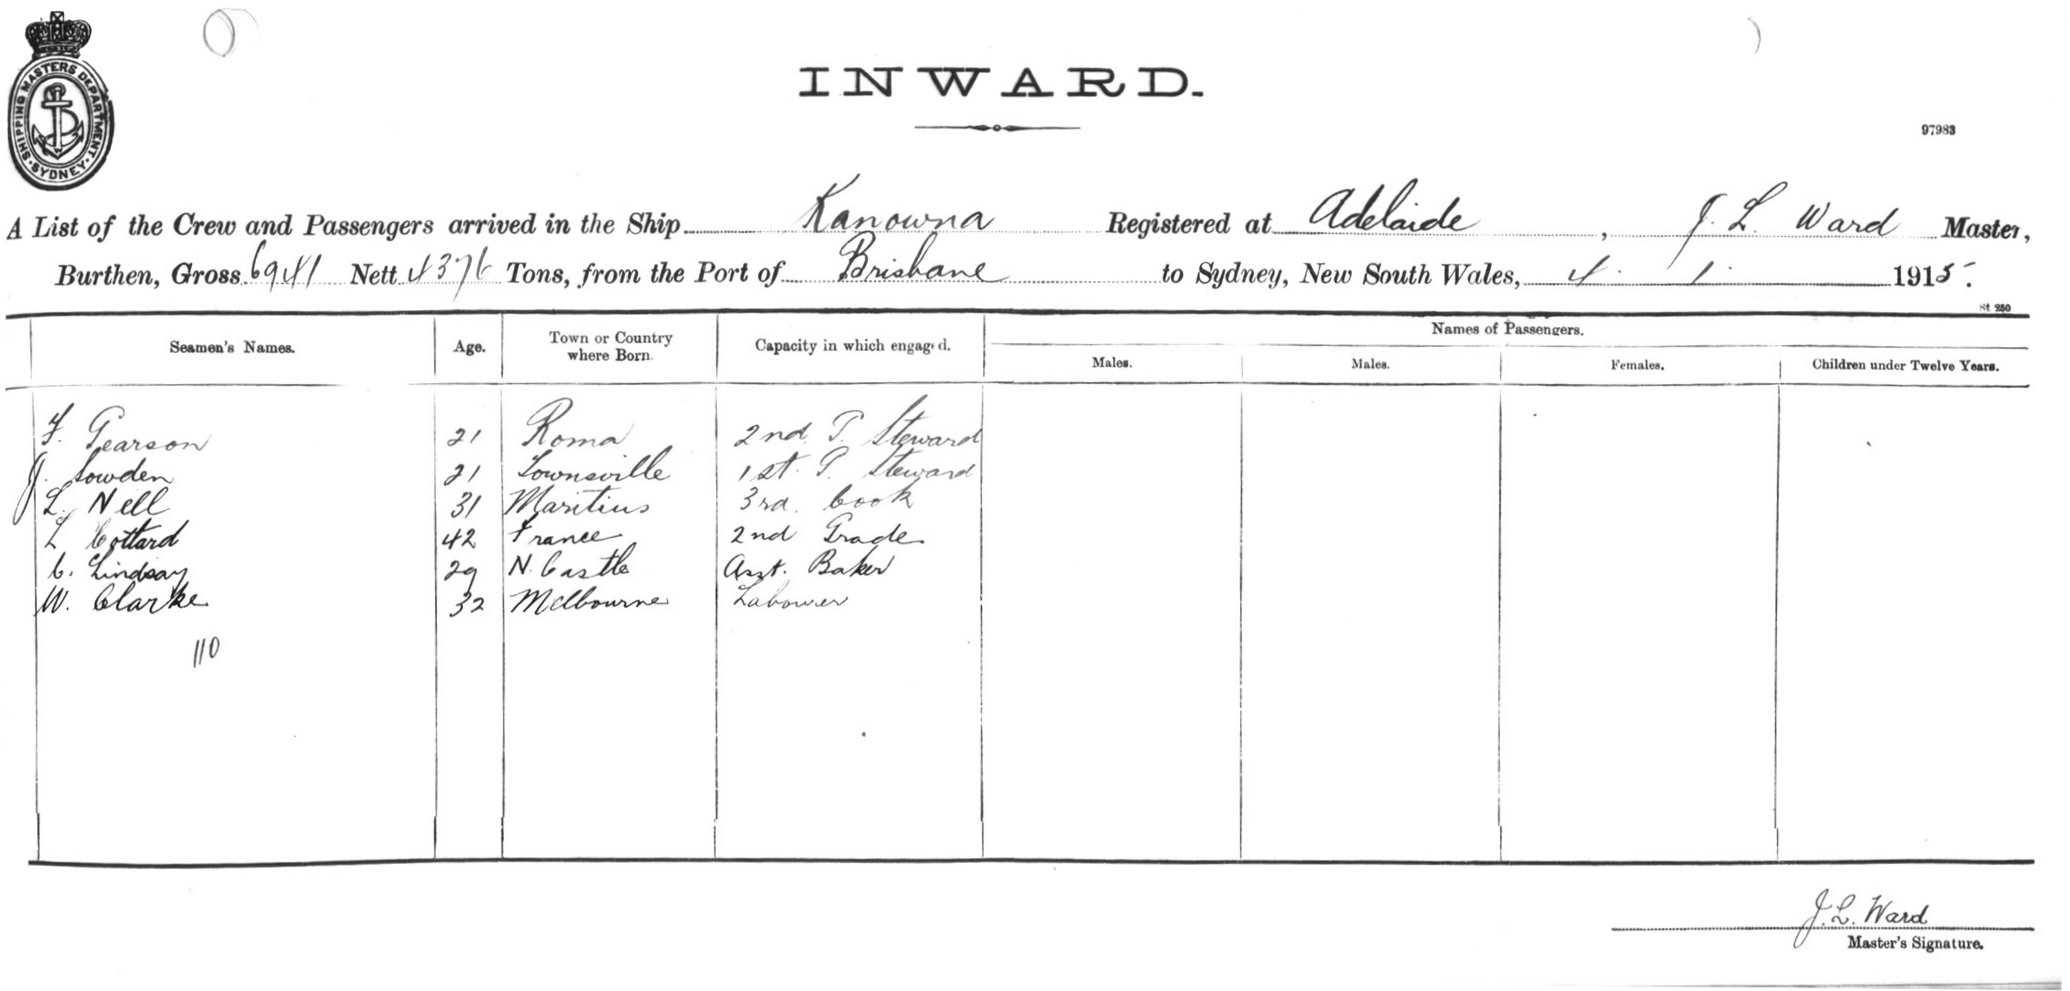 SHIPPING MASTERS DEPARTMENT · SYDNEY ·
INWARD.
97983
A List of the Crew and Passengers arrived in the Ship Kanowna Registered at Adelaide, J. L. Ward Master,
Burthen, Gross 6941 Nett 4376 Tons, from the Port of Brisbane to Sydney, New South Wales, 4. 1. 1915.
St 250
Seamen's Names. Age. Town or Country where Born. Capacity in which engaged. Names of Passengers.
Males. Males. Females. Children under Twelve Years.
F. Pearson 21 Roma 2nd P. Steward
J. Sowden 21 Townsville 1st. P. Steward
L. Nell 31 Maritius 3rd. Cook
L Cottard 42 France 2nd Grade
C. Lindsay 29 N. Castle Asst. Baker
W. Clarke 32 Melbourne Labourer
110
J. L. Ward
Master's Signature.